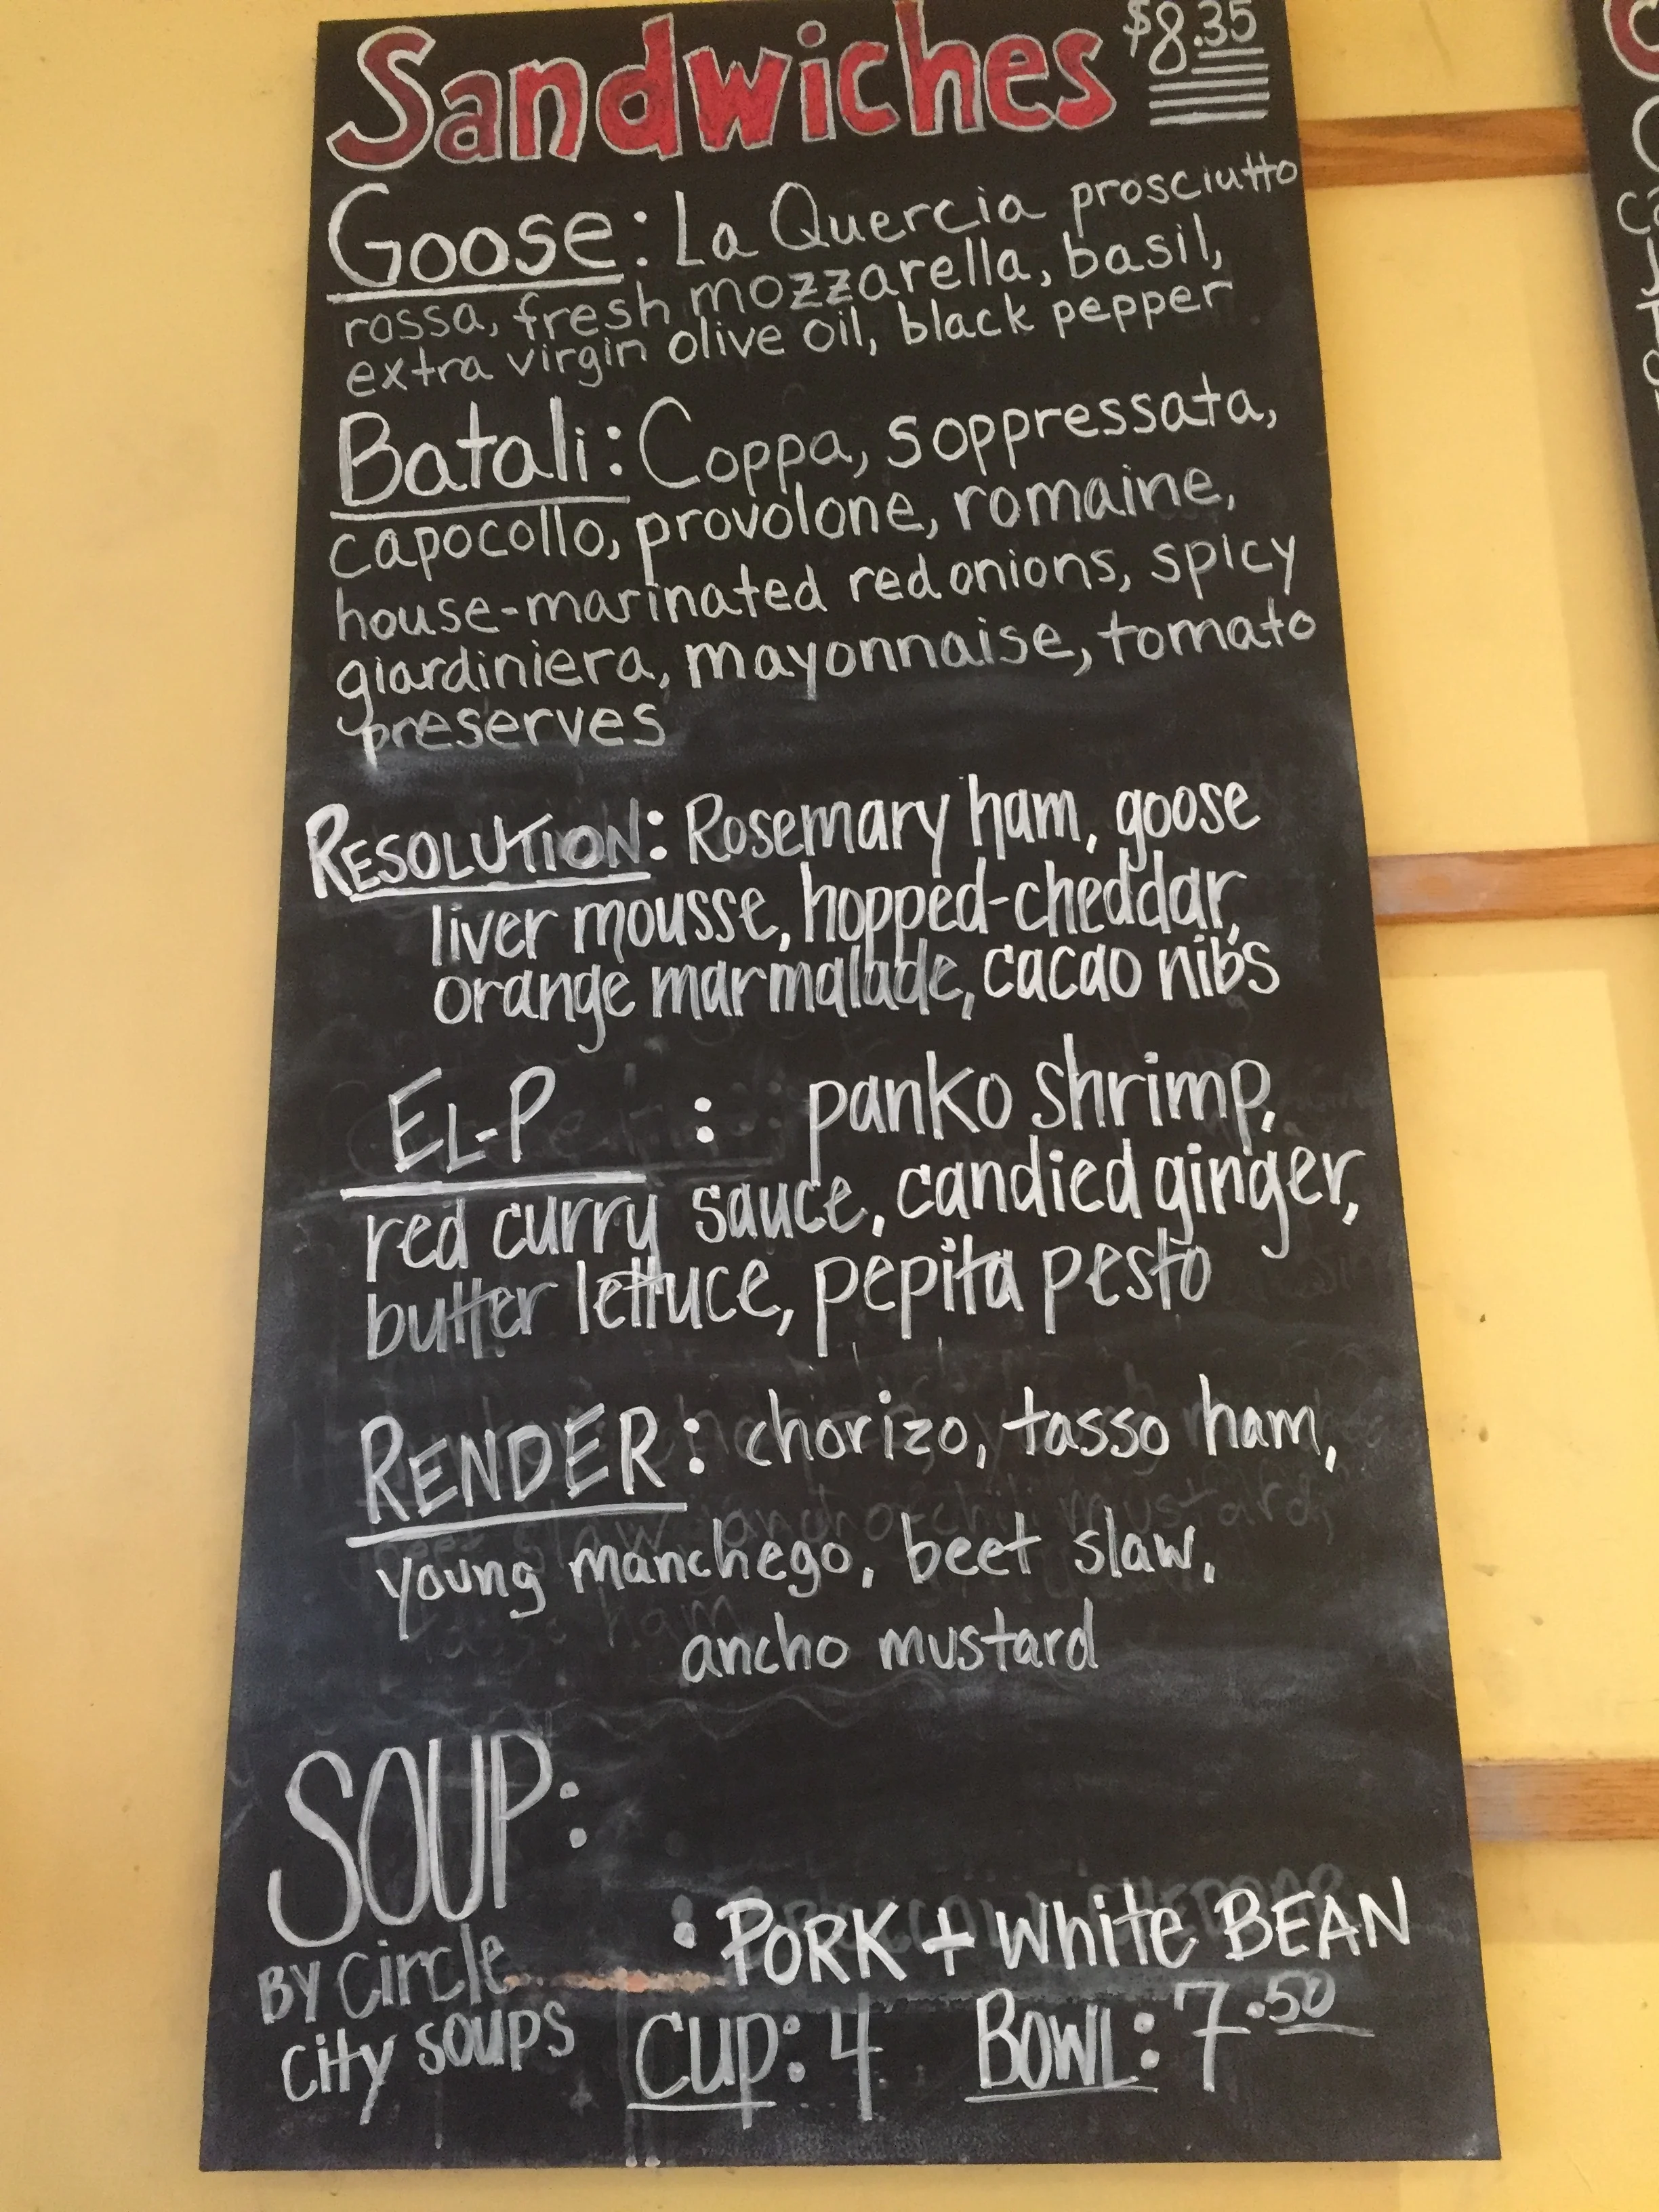 Sandwiches $8.35
Goose: La Quercia prosciutto
rossa, fresh mozzarella, basil,
extra virgin olive oil, black pepper
Batali: Coppa, soppressata,
capocollo, provolone, romaine,
house-marinated red onions, spicy
giardiniera, mayonnaise, tomato
preserves
RESOLUTION: Rosemary ham, goose
liver mousse, hopped-cheddar,
orange marmalade, cacao nibs
EL-P : panko shrimp,
red curry sauce, candied ginger,
butter lettuce, pepita pesto
RENDER: chorizo, tasso ham,
young manchego, beet slaw,
ancho mustard
SOUP:
BY Circle
City SOUPS
: PORK + White BEAN
CUP: 4 BOWL: 7.50